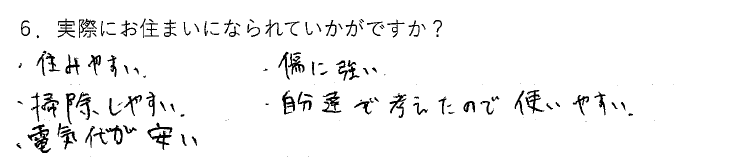 6．実際にお住まいになられていかがですか？
・住みやすい. ・傷に強い
・掃除しやすい. ・自分達で考えたので使いやすい.
・電気代が安い